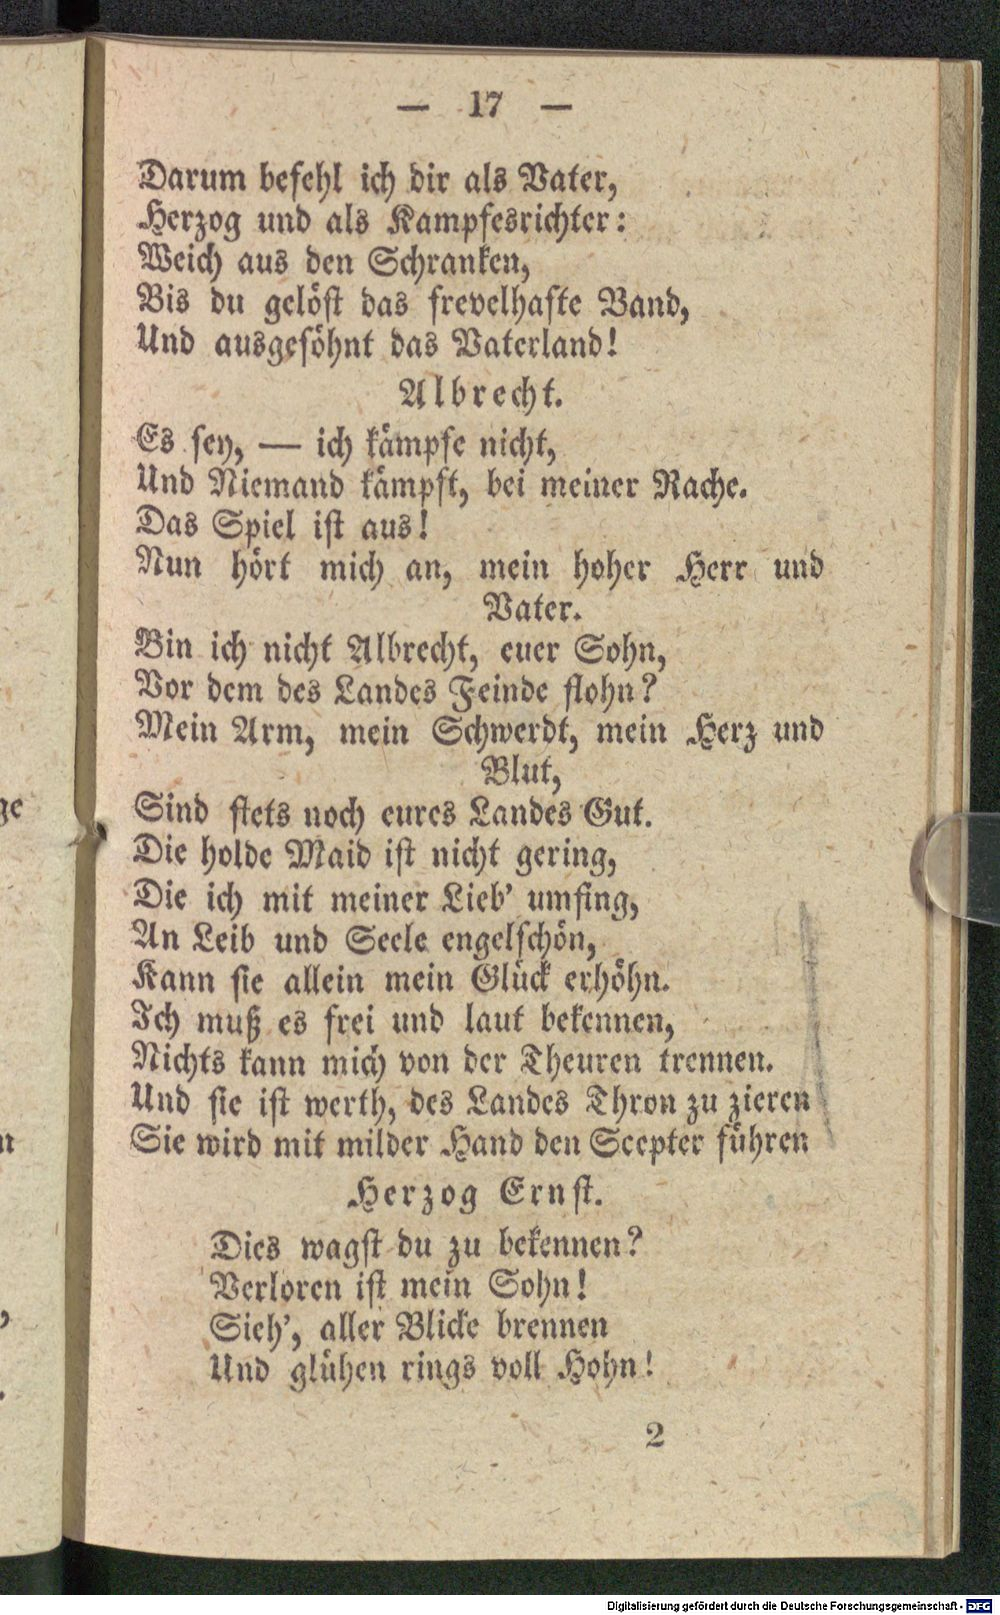 — 17 —
Darum befehl ich dir als Vater,
Herzog und als Kampfesrichter:
Weich aus den Schranken,
Bis du gelöst das frevelhafte Band,
Und ausgesöhnt das Vaterland!
Albrecht.
Es sey, — ich kämpfe nicht,
Und Niemand kämpft, bei meiner Rache.
Das Spiel ist aus!
Nun hört mich an, mein hoher Herr und
Vater.
Bin ich nicht Albrecht, euer Sohn,
Vor dem des Landes Feinde flohn?
Mein Arm, mein Schwerdt, mein Herz und
Blut,
Sind stets noch eures Landes Gut.
Die holde Maid ist nicht gering,
Die ich mit meiner Lieb' umfing,
An Leib und Seele engelschön,
Kann sie allein mein Glück erhöhn.
Ich muß es frei und laut bekennen,
Nichts kann mich von der Theuren trennen.
Und sie ist werth, des Landes Thron zu zieren
Sie wird mit milder Hand den Scepter führen
Herzog Ernst.
Dies wagst du zu bekennen?
Verloren ist mein Sohn!
Sieh', aller Blicke brennen
Und glühen rings voll Hohn!
2
ge
n
Digitalisierung gefördert durch die Deutsche Forschungsgemeinschaft - DFG